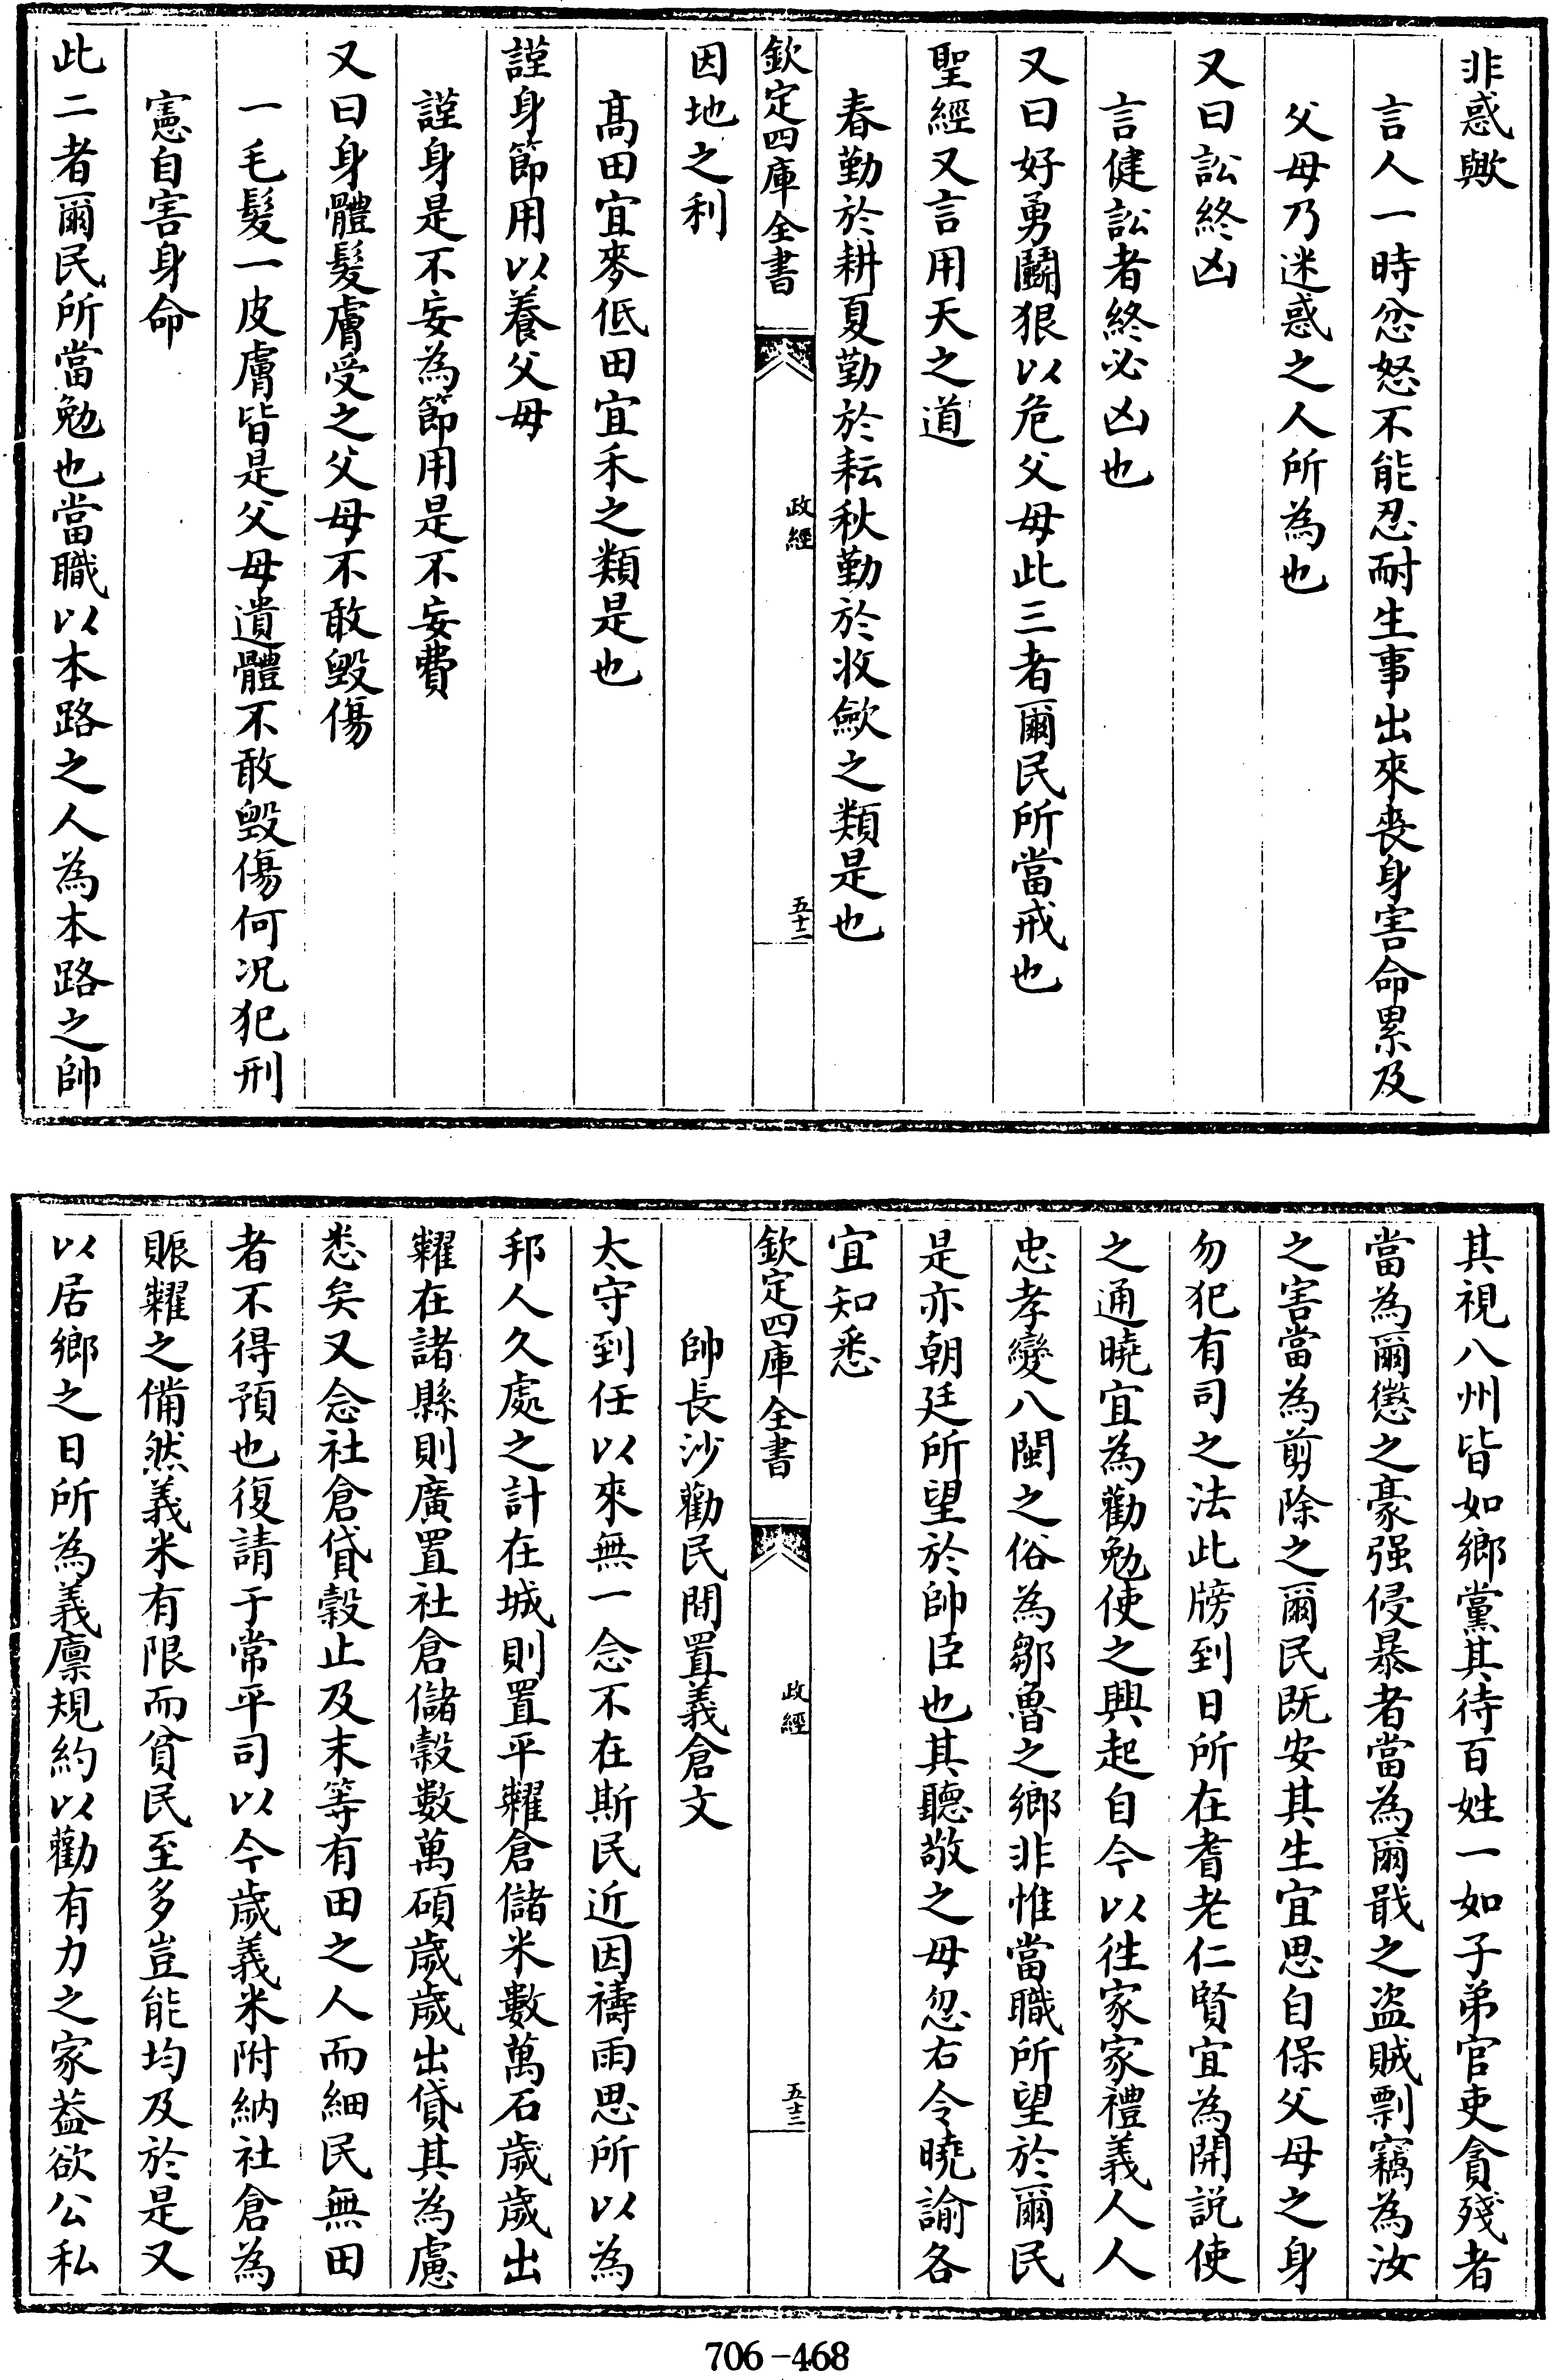 非惑歟
言人一時忿怒不能忍耐生事出來喪身害命累及
父母乃迷惑之人所為也
又曰訟終凶
言健訟者終必凶也
又曰好勇鬬狠以危父母此三者爾民所當戒也
聖經又言用天之道
春勤於耕夏勤於耘秋勤於收歛之類是也
欽定四庫全書
政經
五十二
因地之利
髙田宜麥低田宜禾之類是也
謹身節用以養父母
謹身是不妄為節用是不妄費
又曰身體髮膚受之父母不敢毀傷
一毛髮一皮膚皆是父母遺體不敢毀傷何况犯刑
憲自害身命
此二者爾民所當勉也當職以本路之人為本路之帥
其視八州皆如鄉黨其待百姓一如子弟官吏貪殘者
當為爾懲之豪强侵暴者當為爾戢之盜賊剽竊為汝
之害當為剪除之爾民既安其生宜思自保父母之身
勿犯有司之法此牓到日所在耆老仁賢宜為開説使
之通曉宜為勸勉使之興起自今以徃家家禮義人人
忠孝變八閩之俗為鄒魯之鄉非惟當職所望於爾民
是亦朝廷所望於帥臣也其聽敬之毋忽右令曉諭各
宜知悉
欽定四庫全書
政經
五十三
帥長沙勸民間置義倉文
太守到任以來無一念不在斯民近因禱雨思所以為
邦人久處之計在城則置平糶倉儲米數萬石歲歲出
糶在諸縣則廣置社倉儲穀數萬碩歲歲出貸其為慮
悉矣又念社倉貸穀止及末等有田之人而細民無田
者不得預也復請于常平司以今歲義米附納社倉為
賑糶之備然義米有限而貧民至多豈能均及於是又
以居鄉之日所為義廪規約以勸有力之家葢欲公私
706-468